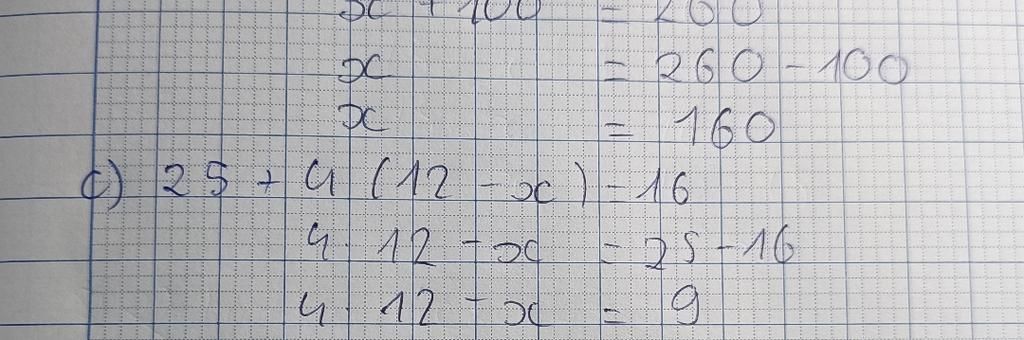 x + 100 = 260
x = 260 - 100
x = 160
c) 25 + 4 (12 - x) = 16
4 . 12 - x = 25 - 16
4 . 12 - x = 9